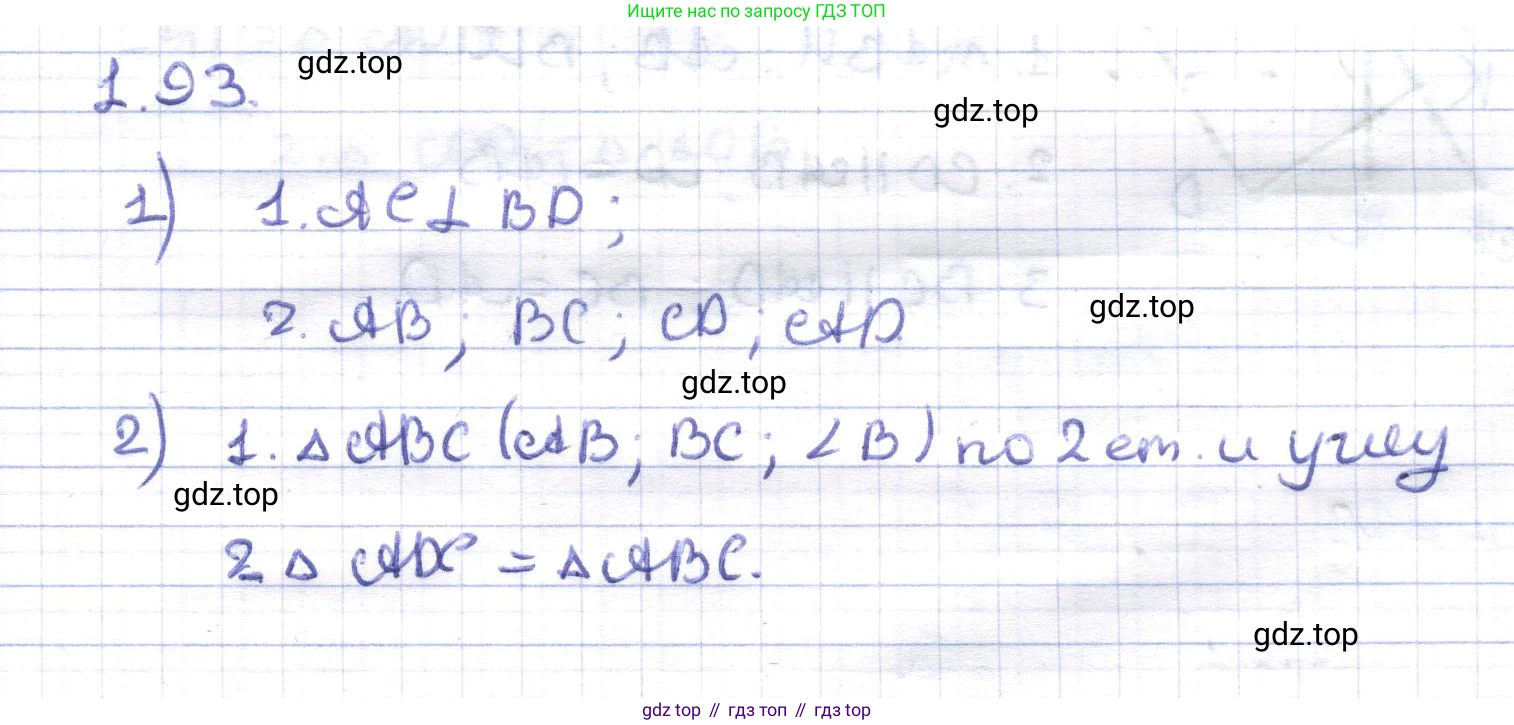 Ищите нас по запросу ГДЗ ТОП
1.93.
gdz.top
gdz.top
1) 1. AC ⊥ BD;
2. AB; BC; CD; AD.
gdz.top
gdz.top
2) 1. △ ABC (AB; BC; ∠B) по 2 ст. и углу
gdz.top
2. △ ADC = △ ABC.
gdz.top
gdz top // гдз топ // гдз top